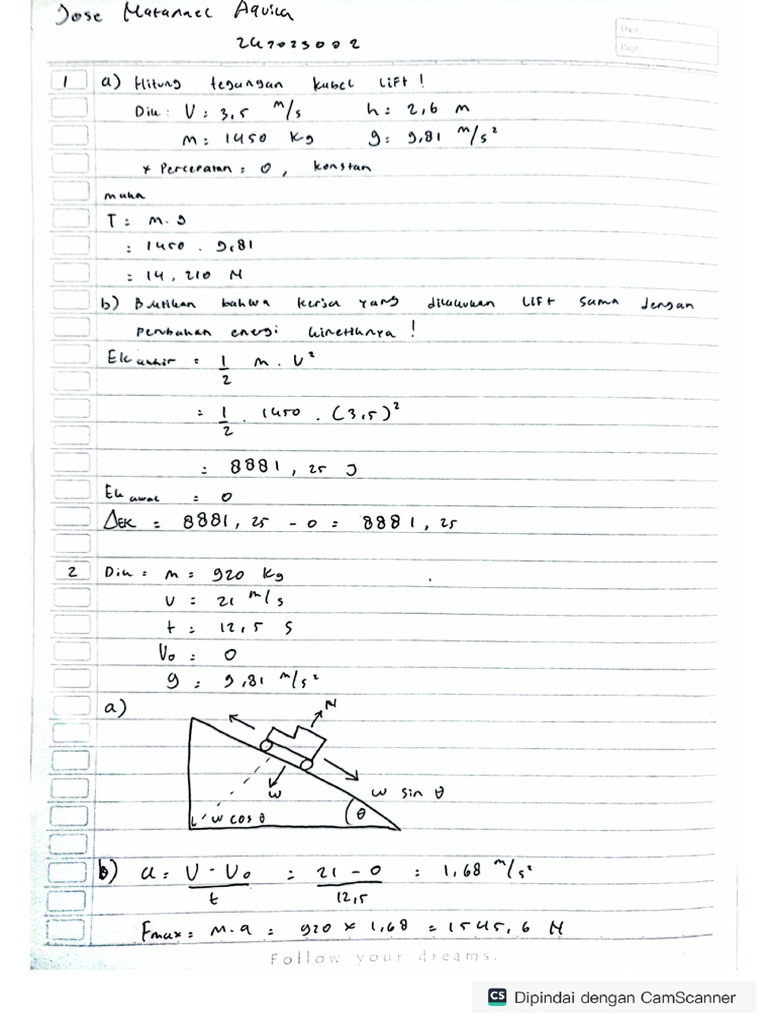 Jose Matanael Aquila
247023002
Date:
Page:
1 a) Hitung tegangan kabel Lift!
Dik: V = 3,5 m/s h = 2,6 m
m = 1450 kg g = 9,81 m/s²
* Percepatan = 0, konstan
maka
T = m.g
= 1450 . 9,81
= 14,210 N
b) Buktikan bahwa kerja yang dilakukan Lift sama dengan
perubahan energi kinetiknya!
Ek akhir = 1/2 m . V²
= 1/2 . 1450 . (3,5)²
= 8881,25 J
Ek awal = 0
ΔEK = 8881,25 - 0 = 8881,25
2 Dik = m = 920 kg
V = 21 m/s
t = 12,5 s
Vo = 0
g = 9,81 m/s²
a)
N
w
w sin θ
w cos θ
θ
b) a = V - Vo / t = 21 - 0 / 12,5 = 1,68 m/s²
Fmax = m.a = 920 x 1,68 = 1545,6 N
Follow your dreams.
CS Dipindai dengan CamScanner